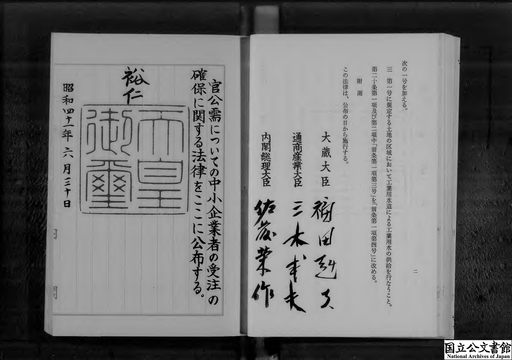 次の一号を加える。
三 第一号に規定する土地の区域において工業用水道による工業用水の供給を行なうこと。
第二十条第一項及び第二項中「前条第一項第三号」を「前条第一項第四号」に改める。
附 則
この法律は、公布の日から施行する。
二
大蔵大臣 福田赳夫
通商産業大臣 三木武夫
内閣総理大臣 佐藤榮作
官公需についての中小企業者の受注の
確保に関する法律をここに公布する。
裕仁
天皇
御璽
昭和四十一年六月三十日
国立公文書館
National Archives of Japan